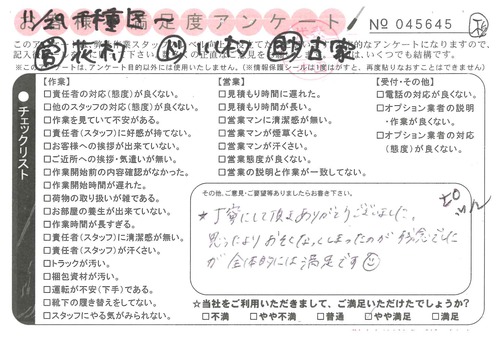 お客様満足度アンケート
No 045645
11/29 千種区～
営 花村 作 川村 助 古家
【作業】
□責任者の対応(態度)が良くない。
□他のスタッフの対応(態度)が良くない。
□作業を見ていて不安がある。
□責任者(スタッフ)に好感が持てない。
□お客様への挨拶が出来ていない。
□ご近所への挨拶・気遣いが無い。
□作業開始前の内容確認がなかった。
□作業開始時間が遅れた。
□荷物の取り扱いが雑である。
□お部屋の養生が出来ていない。
□作業時間が長すぎる。
□責任者(スタッフ)に清潔感が無い。
□責任者(スタッフ)が汗くさい。
□トラックが汚い。
□梱包資材が汚い。
□運転が不安(下手)である。
□靴下の履き替えをしてない。
□スタッフにやる気がみられない。
【営業】
□見積もり時間に遅れた。
□見積もり時間が長い。
□営業マンに清潔感が無い。
□営業マンが煙草くさい。
□営業マンが汗くさい。
□営業態度が良くない。
□営業の説明と作業が一致してない。
【受付・その他】
□電話の対応が良くない。
□オプション業者の説明
・作業が良くない。
□オプション業者の対応
(態度)が良くない。
チェックリスト
その他、ご意見・ご要望等ありましたらお書き下さい。
★丁寧にして頂きありがとうございました。
思ったよりおそくなってしまったのが残念でした
が全体的には満足です
☆当社をご利用いただきまして、ご満足いただけたでしょうか?
□不満 □やや不満 □普通 □やや満足 □満足